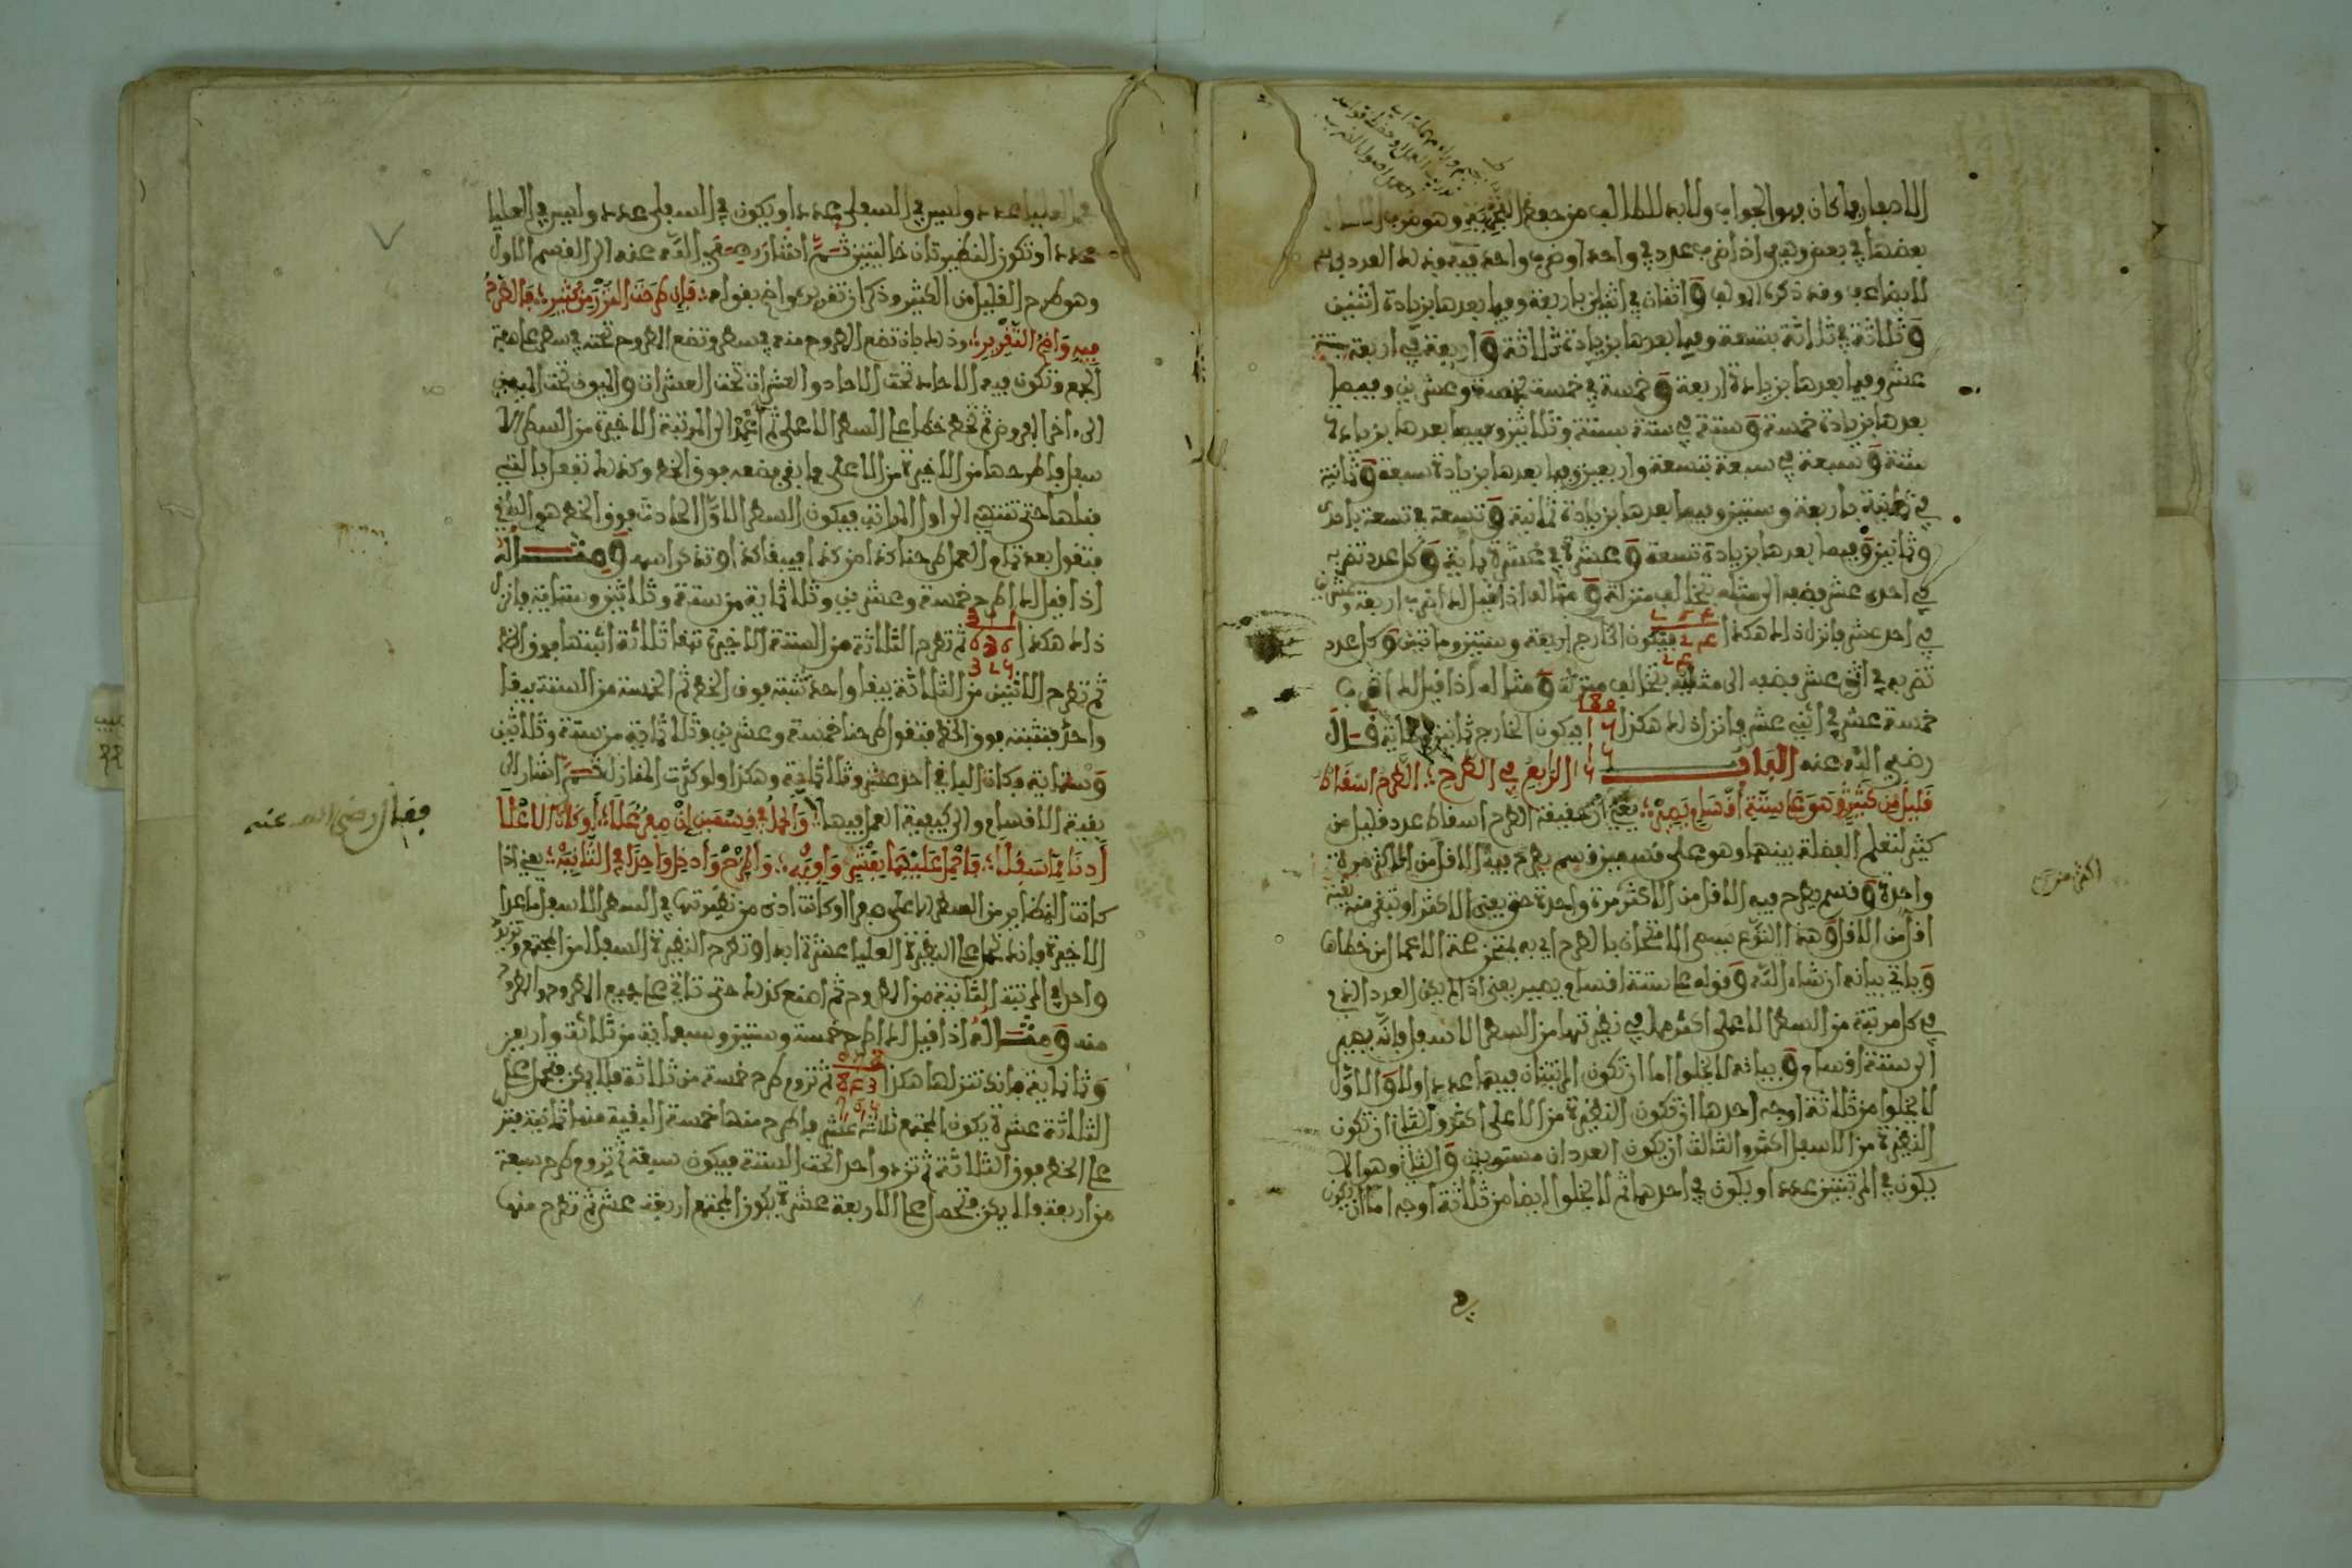 بعضها في بعض وهي اذا ضرب عدد في واحد او ضرب واحد فيه فذلك العدد
لا يضاعف وقد ذكره المولف و اثنان في اثنين باربعة وفيما بعدها بزيادة اثنين
و ثلاثة في ثلاثة بتسعة وفيما بعدها بزيادة ثلاثة و اربعة في اربعة بستة
عشر وفيما بعدها بزيادة اربعة و خمسة في خمسة بخمسة وعشرين وفيما
بعدها بزيادة خمسة و ستة في ستة بستة وثلاثين وفيما بعدها بزيادة
ستة و سبعة في سبعة بتسعة واربعين وفيما بعدها بزيادة سبعة و ثمانية
في ثمانية باربعة وستين وفيما بعدها بزيادة ثمانية و تسعة في تسعة باحد
وثمانين وفيما بعدها بزيادة تسعة و عشرة في عشرة بماية و كل عدد تضربه
في احد عشر فضعه الى مثله بخالف منزلة و مثاله اذا قيل لك اضرب اربعة وعشرين
في احد عشر فانزل ذلك هكذا فيكون الخارج اربعة وستين ومايتين و كل عدد
تضربه في اثني عشر فضعه الى مثليه بخالف منزلة و مثاله اذا قيل لك اضرب
خمسة عشر في اثني عشر فانزل ذلك هكذا فيكون الخارج ثمانين وماية قال
رضي الله عنه الباب الرابع في الطرح الطرح اسقاط
قليل من كثير وهو على ستة اقسام يصير يعني ان حقيقة الطرح اسقاط عدد قليل من
كثير لتعلم الفضلة بينهما وهو على قسمين قسم يطرح فيه الاقل من الاكثر مرة
واحدة و قسم يطرح فيه الاقل من الاكثر مرة واحدة حتى يفنى الاكثر او تبقى منه بقية
اقل من الاقل و هذا النوع يسمى الامتحان بالطرح اي به يمتحن صحة الاعمال من خطاها
و ياتي بيانه ان شاء الله و قوله على ستة اقسام يصير يعني اذا لم يكن العدد الذي
في كل مرتبة من السطر الاعلى اكثر مما في نظيرتها من السطر الاسفل فانه يصير
الى ستة اقسام و بيانه لا يخلوا اما ان تكون المرتبتان فيهما عدد اولا و الاول
لا يخلوا من ثلاثة اوجه احدها ان تكون النظيرة من الاعلى اكثر و الثاني ان تكون
النظيرة من الاسفل اكثر و الثالث ان يكون العددان مستويين و الثاني وهو الا
يكون في المرتبتين عدد او يكون في احدهما ثم لا يخلوا ايضا من ثلاثة اوجه اما ان يكون
اكثر من
في العليا عدد وليس في السفلى عدد او يكون في السفلى عدد وليس في العليا
عدد او تكون النظيرتان خاليتين ثم اشار رضي الله عنه الى القسم الاول
وهو طرح القليل من الكثير وذكر ان تقريره واضح بقوله فان طرحت النزر من كثير فالطرح
فيه واضح التقرير وذلك بان تضع المطروح منه في سطر وتضع المطروح تحته في سطر على هيئة
الجمع وتكون فيه الاحاد تحت الاحاد والعشرات تحت العشرات و الميون تحت الميين
الى اخر المفروض ثم تخط خطا على السطر الاعلى ثم اعمد الى المرتبة الاخيرة من السطر الا
سفل فاطرحها من الاخيرة من الاعلى فما بقي فضعه فوق الخط وكذلك تفعل بالتي
قبلها حتى تنتهي الى اول المراتب فيكون السطر الاول الحادث فوق الخط هو الباقي
فتقول بعد تمام العمل طرحنا كذا من كذا فيبقى كذا وتذكر اسمه و مثاله
اذا قيل لك اطرح خمسة وعشرين وثلاثماية من ستة وثلاثين وستماية فانزل
ذلك هكذا 311 636 325 ثم تطرح الثلاثة من الستة الاخيرة تبقى ثلاثة اثبتها فوق الخط
ثم تطرح الاثنين من الثلاثة يبقى واحد تثبته فوق الخط ثم الخمسة من الستة يبقى
واحد فتثبته فوق الخط فتقول طرحنا خمسة وعشرين وثلاثماية من ستة وثلاثين
و ستماية فكان الباقي احد عشر وثلاثماية وهكذا ولو كثرت المنازل ثم اشار الى
بقية الاقسام والى كيفية العمل فيها
فقال رضي الله عنه
كانت النظاير من السطر الاعلى صفرا او كانت ادنى من نظيرتها في السطر الاسفل ما عدا
الاخيرة فانك تحمل على النظيرة العليا عشرة ابدا وتطرح النظيرة السفلى من المجتمع وتزيد
واحدا في المرتبة الثانية من المطروح ثم اصنع كذلك حتى تاتي على جميع المطروح والمطروح
منه و مثاله اذا قيل لك اطرح خمسة وستين وسبعماية من ثلاثة واربعين
و ثمانماية فانك تنزلها هكذا 078 843 765 ثم تروم طرح خمسة من ثلاثة فلا يمكن فتحمل على
الثلاثة عشرة يكون المجتمع ثلاثة عشر فاطرح منها خمسة البقية منها ثمانية فتنزل
على الخط فوق الثلاثة ثم تزيد واحدا تحت الستة فيكون سبعة ثم تروم طرح سبعة
من اربعة فلا يمكن فتحمل على الاربعة عشرة يكون المجتمع اربعة عشر ثم تطرح منها